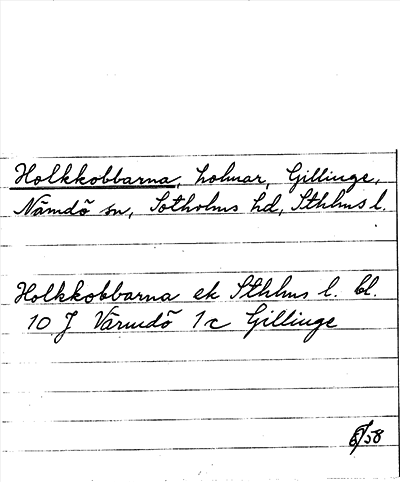 Holkkobbarna, holmar, Gillinge,
Nämdö sn, Sotholms hd, Sthlms l.
Holkkobbarna ek Sthlms l. bl.
10 J Värmdö 1c Gillinge
/58